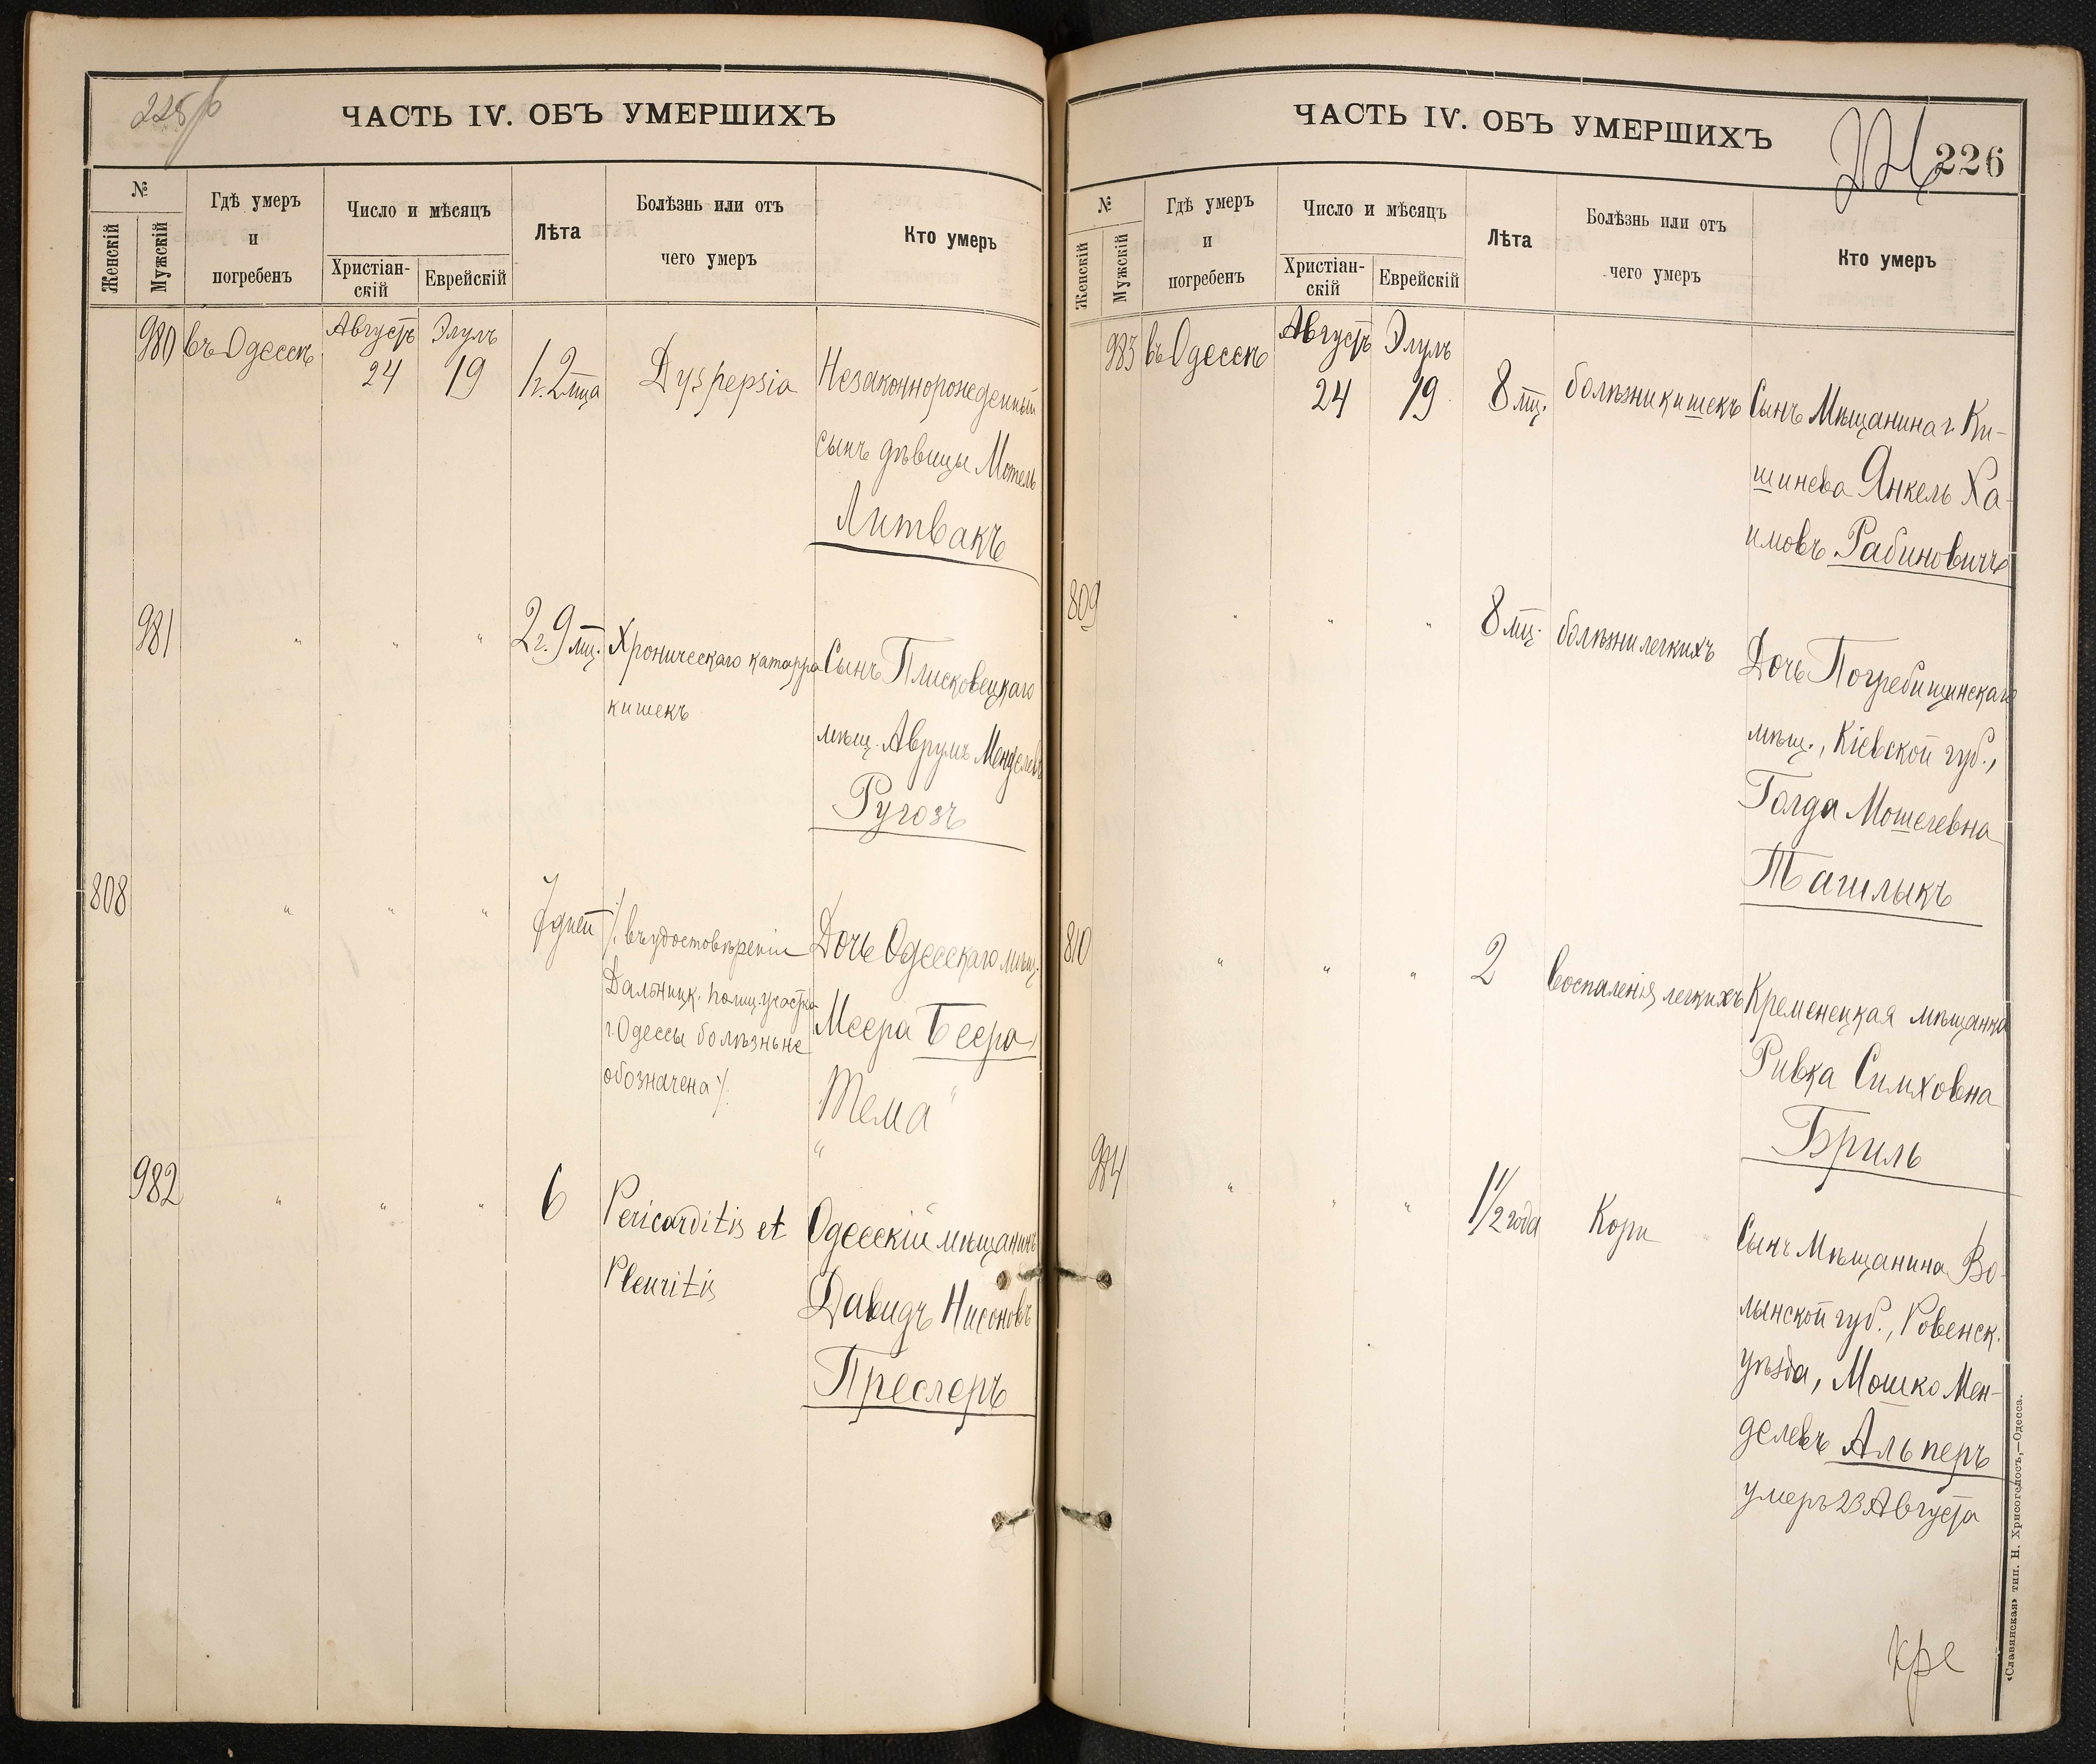 225 об
ЧАСТЬ IV. ОБЪ УМЕРШИХЪ
№
Женскій
Мужскій
Гдѣ умеръ
и
погребенъ
Число и мѣсяцъ
Христіан-
скій
Еврейскій
Лѣта
Болѣзнь или отъ
чего умеръ
Кто умеръ
980 въ Одессѣ Августъ 24 Элулъ 19 1 г. 2 мца Dyspepsia Незаконнорожденный
сынъ дѣвицы Мотель
Литвакъ
981 " " " 2 г. 9 мц. Хроническаго катарра Сынъ Плисковецкаго
кишекъ мѣщ. Аврумъ Менделевъ
Ругозъ
808 " " " 7 дней /. въ удостовѣреніи Дочь Одесскаго мѣщ.
Дальницк. полиц. участка Меера Беера,
г. Одессы болѣзнь не
обозначена /. "Тема"
982 " " " 6 Pericarditis et Одесскій мѣщанинъ
Pleuritis Давидъ Нисоновъ
Преслеръ
ЧАСТЬ IV. ОБЪ УМЕРШИХЪ
226
№
Женскій
Мужскій
Гдѣ умеръ
и
погребенъ
Число и мѣсяцъ
Христіан-
скій
Еврейскій
Лѣта
Болѣзнь или отъ
чего умеръ
Кто умеръ
983 въ Одессѣ Августъ 24 Элулъ 19 8 мц. болѣзни кишекъ Сынъ Мѣщанина г. Ки-
шинева Янкель Ха-
имовъ Рабиновичъ
809 " " " 8 мц. болѣзни легкихъ Дочь Погребищинскаго
мѣщ., Кіевской губ.,
Голда Мошелевна
Ташлыкъ
810 " " " 2 воспаленія легкихъ Кременецкая мѣщанка
Ривка Симховна
Бриль
984 " " " 1 1/2 года Кори Сынъ Мѣщанина Во-
лынской губ., Ровенск.
уѣзда, Мошко Мен-
делевъ Альперъ
умеръ 23 Августа
«Славянская» тип. Н. Хрисогелосъ,—Одесса.